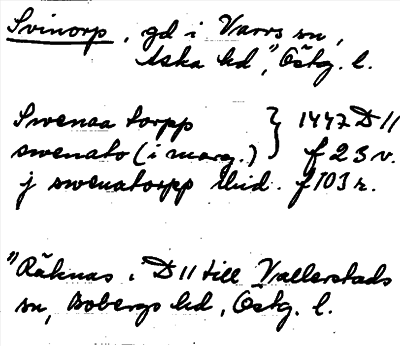 Svinorp, gd i Varvs sn,
Aska hd,", Östg. l.
Swenaa torpp } 1447 D 11
swenato (i marg.) } f 23 v.
j swenatorpp ibid. f 103 r.
"Räknas i D 11 till Vallerstads
sn, Bobergs hd, Östg. l.